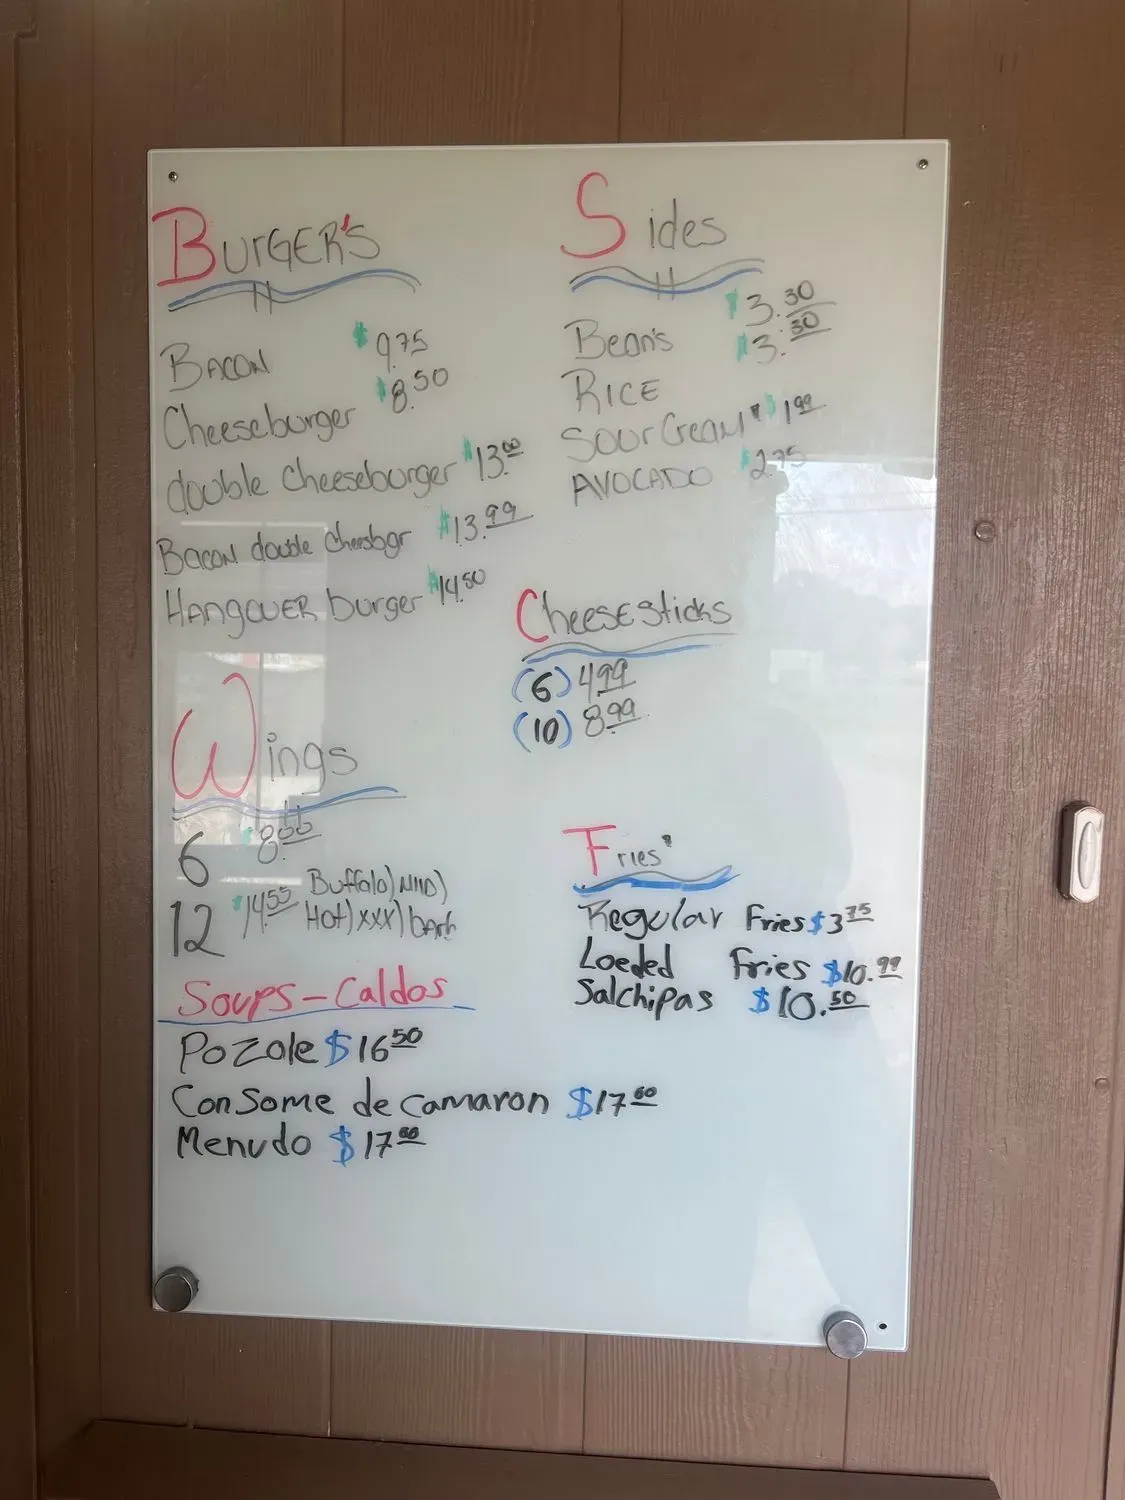 BURGER'S
BACON $9.75
Cheeseburger $8.50
double Cheeseburger $13.00
BACON double Cheesbgr $13.99
HANGOVER burger $14.50
Wings
6 $8.00
12 $14.55 Buffalo) Mild)
Hot) XXX)
Soups - Caldos
Pozole $16.50
Consome de camaron $17.00
Menudo $17.00
Sides
$3.30
Bean's $3.30
RICE
Sour Cream $1.99
AVOCADO $2.75
Cheese sticks
(6) 4.99
(10) 8.99
Fries'
Regular Fries $3.75
Loeded Fries $10.99
Salchipas $10.50